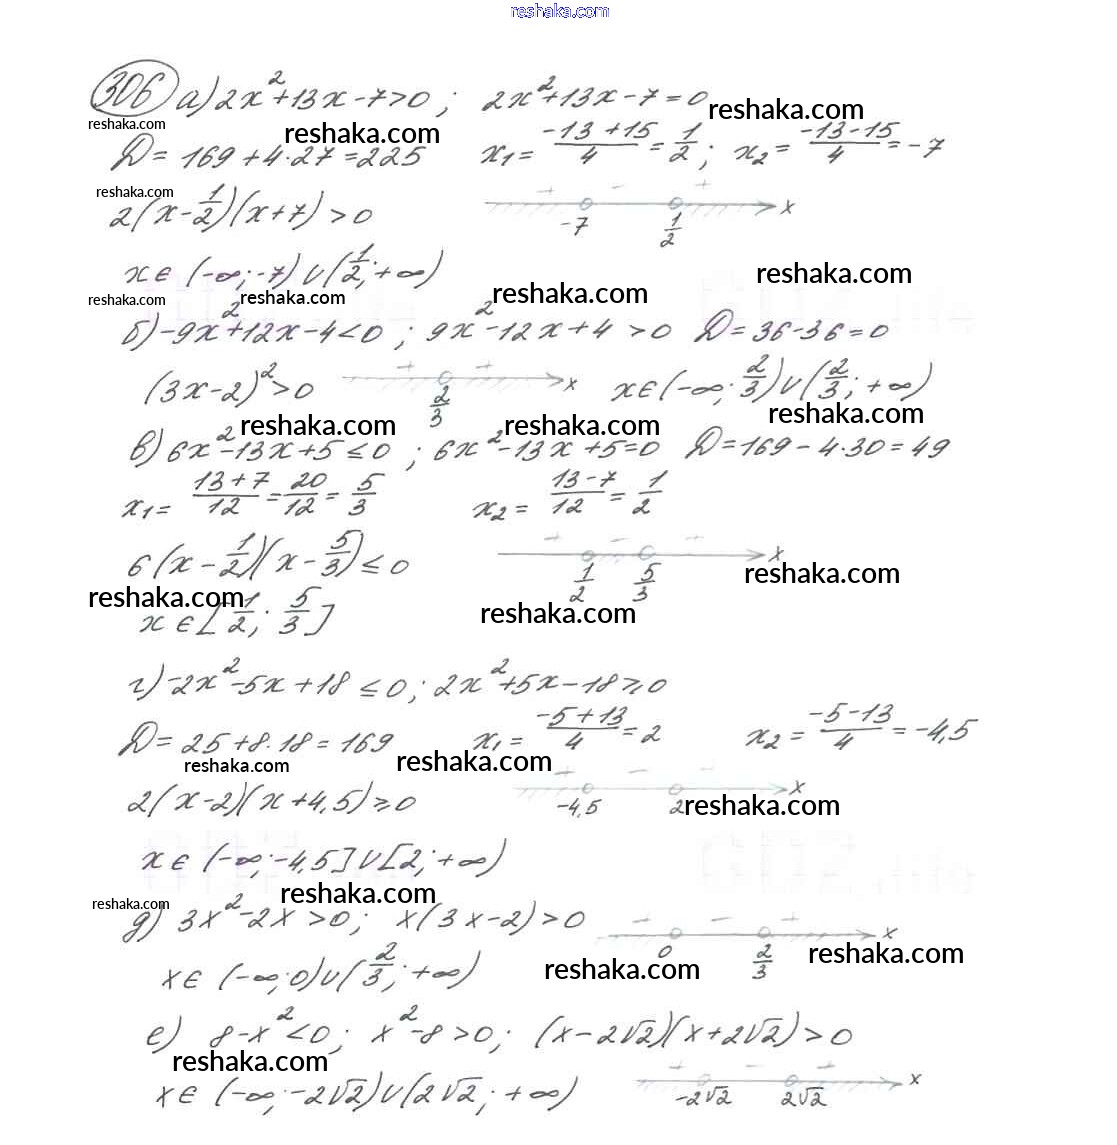 reshaka.com
306 а) 2x²+13x-7>0 ; 2x²+13x-7=0
reshaka.com reshaka.com reshaka.com
D= 169+4·27=225 x₁= (-13+15)/4 = 1/2 ; x₂= (-13-15)/4 = -7
reshaka.com
2(x-1/2)(x+7)>0 + - + -7 1/2 x
x∈ (-∞;-7)∪(1/2;+∞)
reshaka.com reshaka.com reshaka.com reshaka.com
б) -9x²+12x-4<0 ; 9x²-12x+4 >0 D=36-36=0
(3x-2)²>0 + + 2/3 x x∈(-∞;2/3)∪(2/3;+∞)
reshaka.com reshaka.com reshaka.com
в) 6x²-13x+5≤0 ; 6x²-13x+5=0 D=169-4·30=49
x₁= (13+7)/12 = 20/12 = 5/3 x₂= (13-7)/12 = 1/2
6(x-1/2)(x-5/3)≤0 + - + 1/2 5/3 x
reshaka.com reshaka.com reshaka.com
x∈[1/2; 5/3]
г) -2x²-5x+18≤0; 2x²+5x-18≥0
D=25+8·18=169 x₁= (-5+13)/4 = 2 x₂= (-5-13)/4 = -4,5
reshaka.com reshaka.com
2(x-2)(x+4,5)≥0 + - -4,5 2 x
reshaka.com
x∈ (-∞;-4,5]∪[2;+∞)
reshaka.com reshaka.com
д) 3x²-2x>0; x(3x-2)>0 + - + 0 2/3 x
reshaka.com reshaka.com
x∈ (-∞;0)∪(2/3;+∞)
е) 8-x²<0; x²-8>0; (x-2√2)(x+2√2)>0
reshaka.com
x∈ (-∞;-2√2)∪(2√2;+∞) + - + -2√2 2√2 x